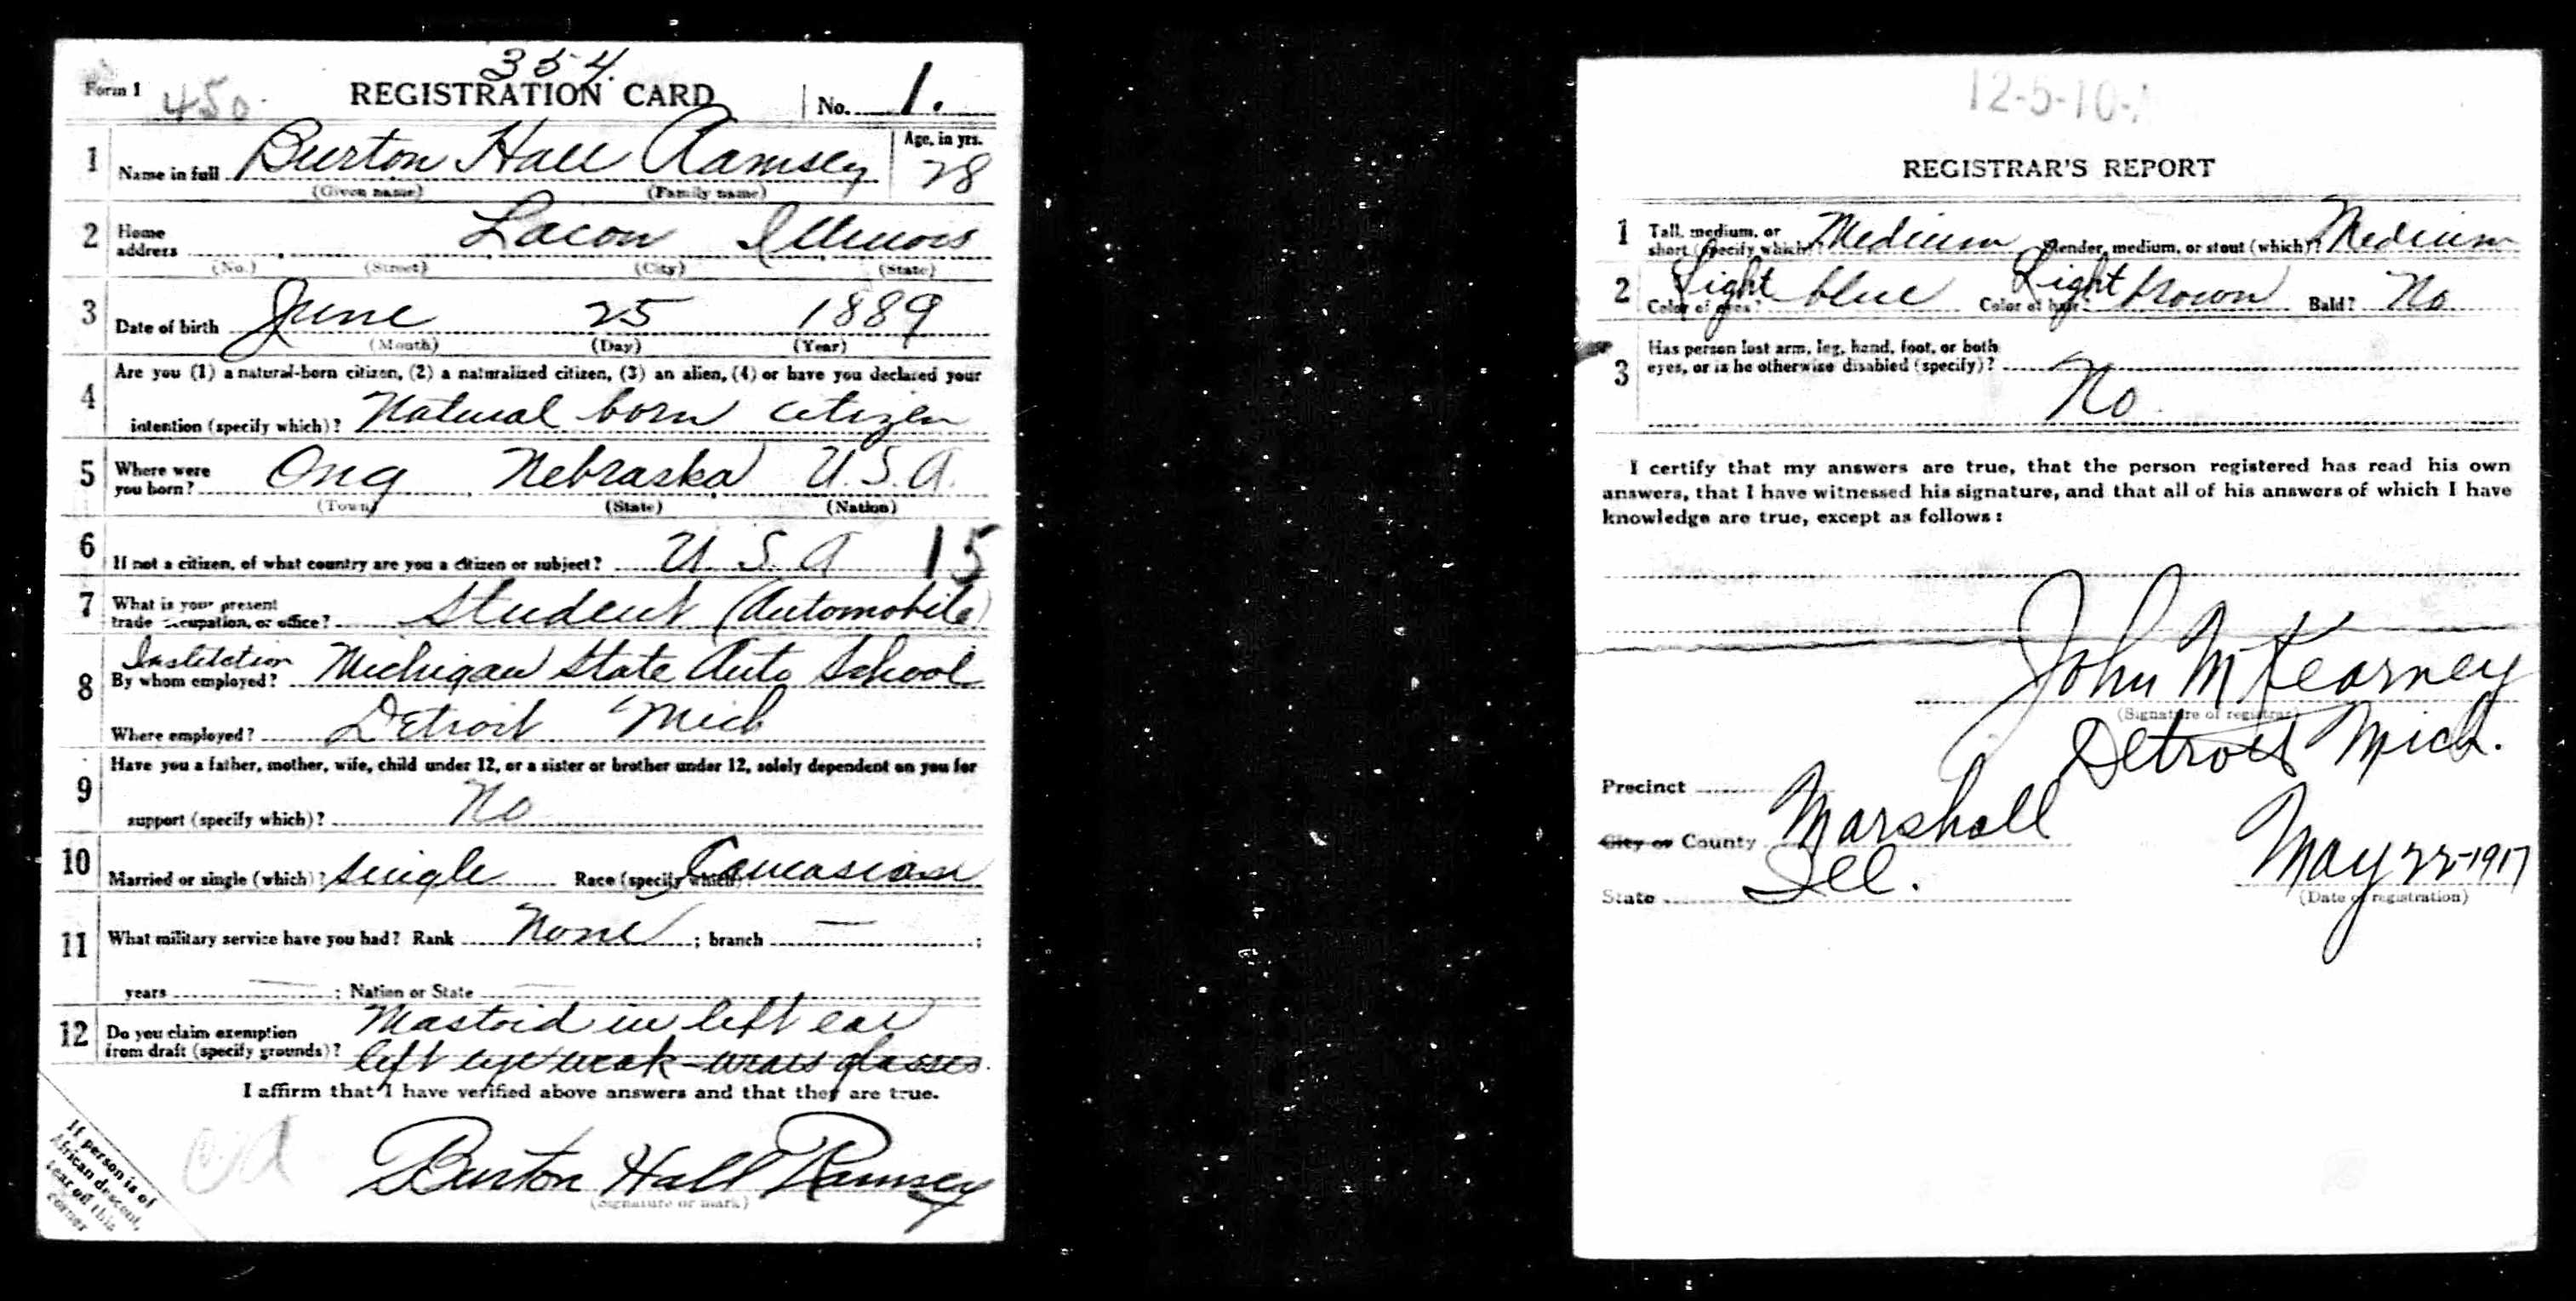 354.
Form 1 450. REGISTRATION CARD No. 1.
1 Name in full Burton Hall Ramsey Age, in yrs. 28
(Given name) (Family name)
2 Home address Lacon Illinois
(No.) (Street) (City) (State)
3 Date of birth June 25 1889
(Month) (Day) (Year)
4 Are you (1) a natural-born citizen, (2) a naturalized citizen, (3) an alien, (4) or have you declared your
intention (specify which)? Natural born citizen
5 Where were you born? Ong Nebraska U.S.A.
(Town) (State) (Nation)
6 If not a citizen, of what country are you a citizen or subject? U. S. A 15
7 What is your present
trade occupation, or office? Student (Automobile)
Institution
8 By whom employed? Michigan State Auto School
Where employed? Detroit Mich
9 Have you a father, mother, wife, child under 12, or a sister or brother under 12, solely dependent on you for
support (specify which)? No
10 Married or single (which)? Single Race (specify which)? Caucasian
11 What military service have you had? Rank None ; branch — ;
years — ; Nation or State —
12 Do you claim exemption Mastoid in left ear
from draft (specify grounds)? left eye weak - wears glasses.
I affirm that I have verified above answers and that they are true.
Burton Hall Ramsey
(Signature or mark)
If person is of
African descent,
tear off this
corner
12-5-10-
REGISTRAR'S REPORT
1 Tall, medium, or
short (specify which)? Medium Slender, medium, or stout (which)? Medium
2 Color of eyes? Light blue Color of hair? Light brown Bald? No
3 Has person lost arm, leg, hand, foot, or both
eyes, or is he otherwise disabled (specify)?
No
I certify that my answers are true, that the person registered has read his own
answers, that I have witnessed his signature, and that all of his answers of which I have
knowledge are true, except as follows:
John M Kearney
(Signature of registrar)
Detroit Mich.
Precinct
City or County Marshall
State Ill. May 22-1917
(Date of registration)